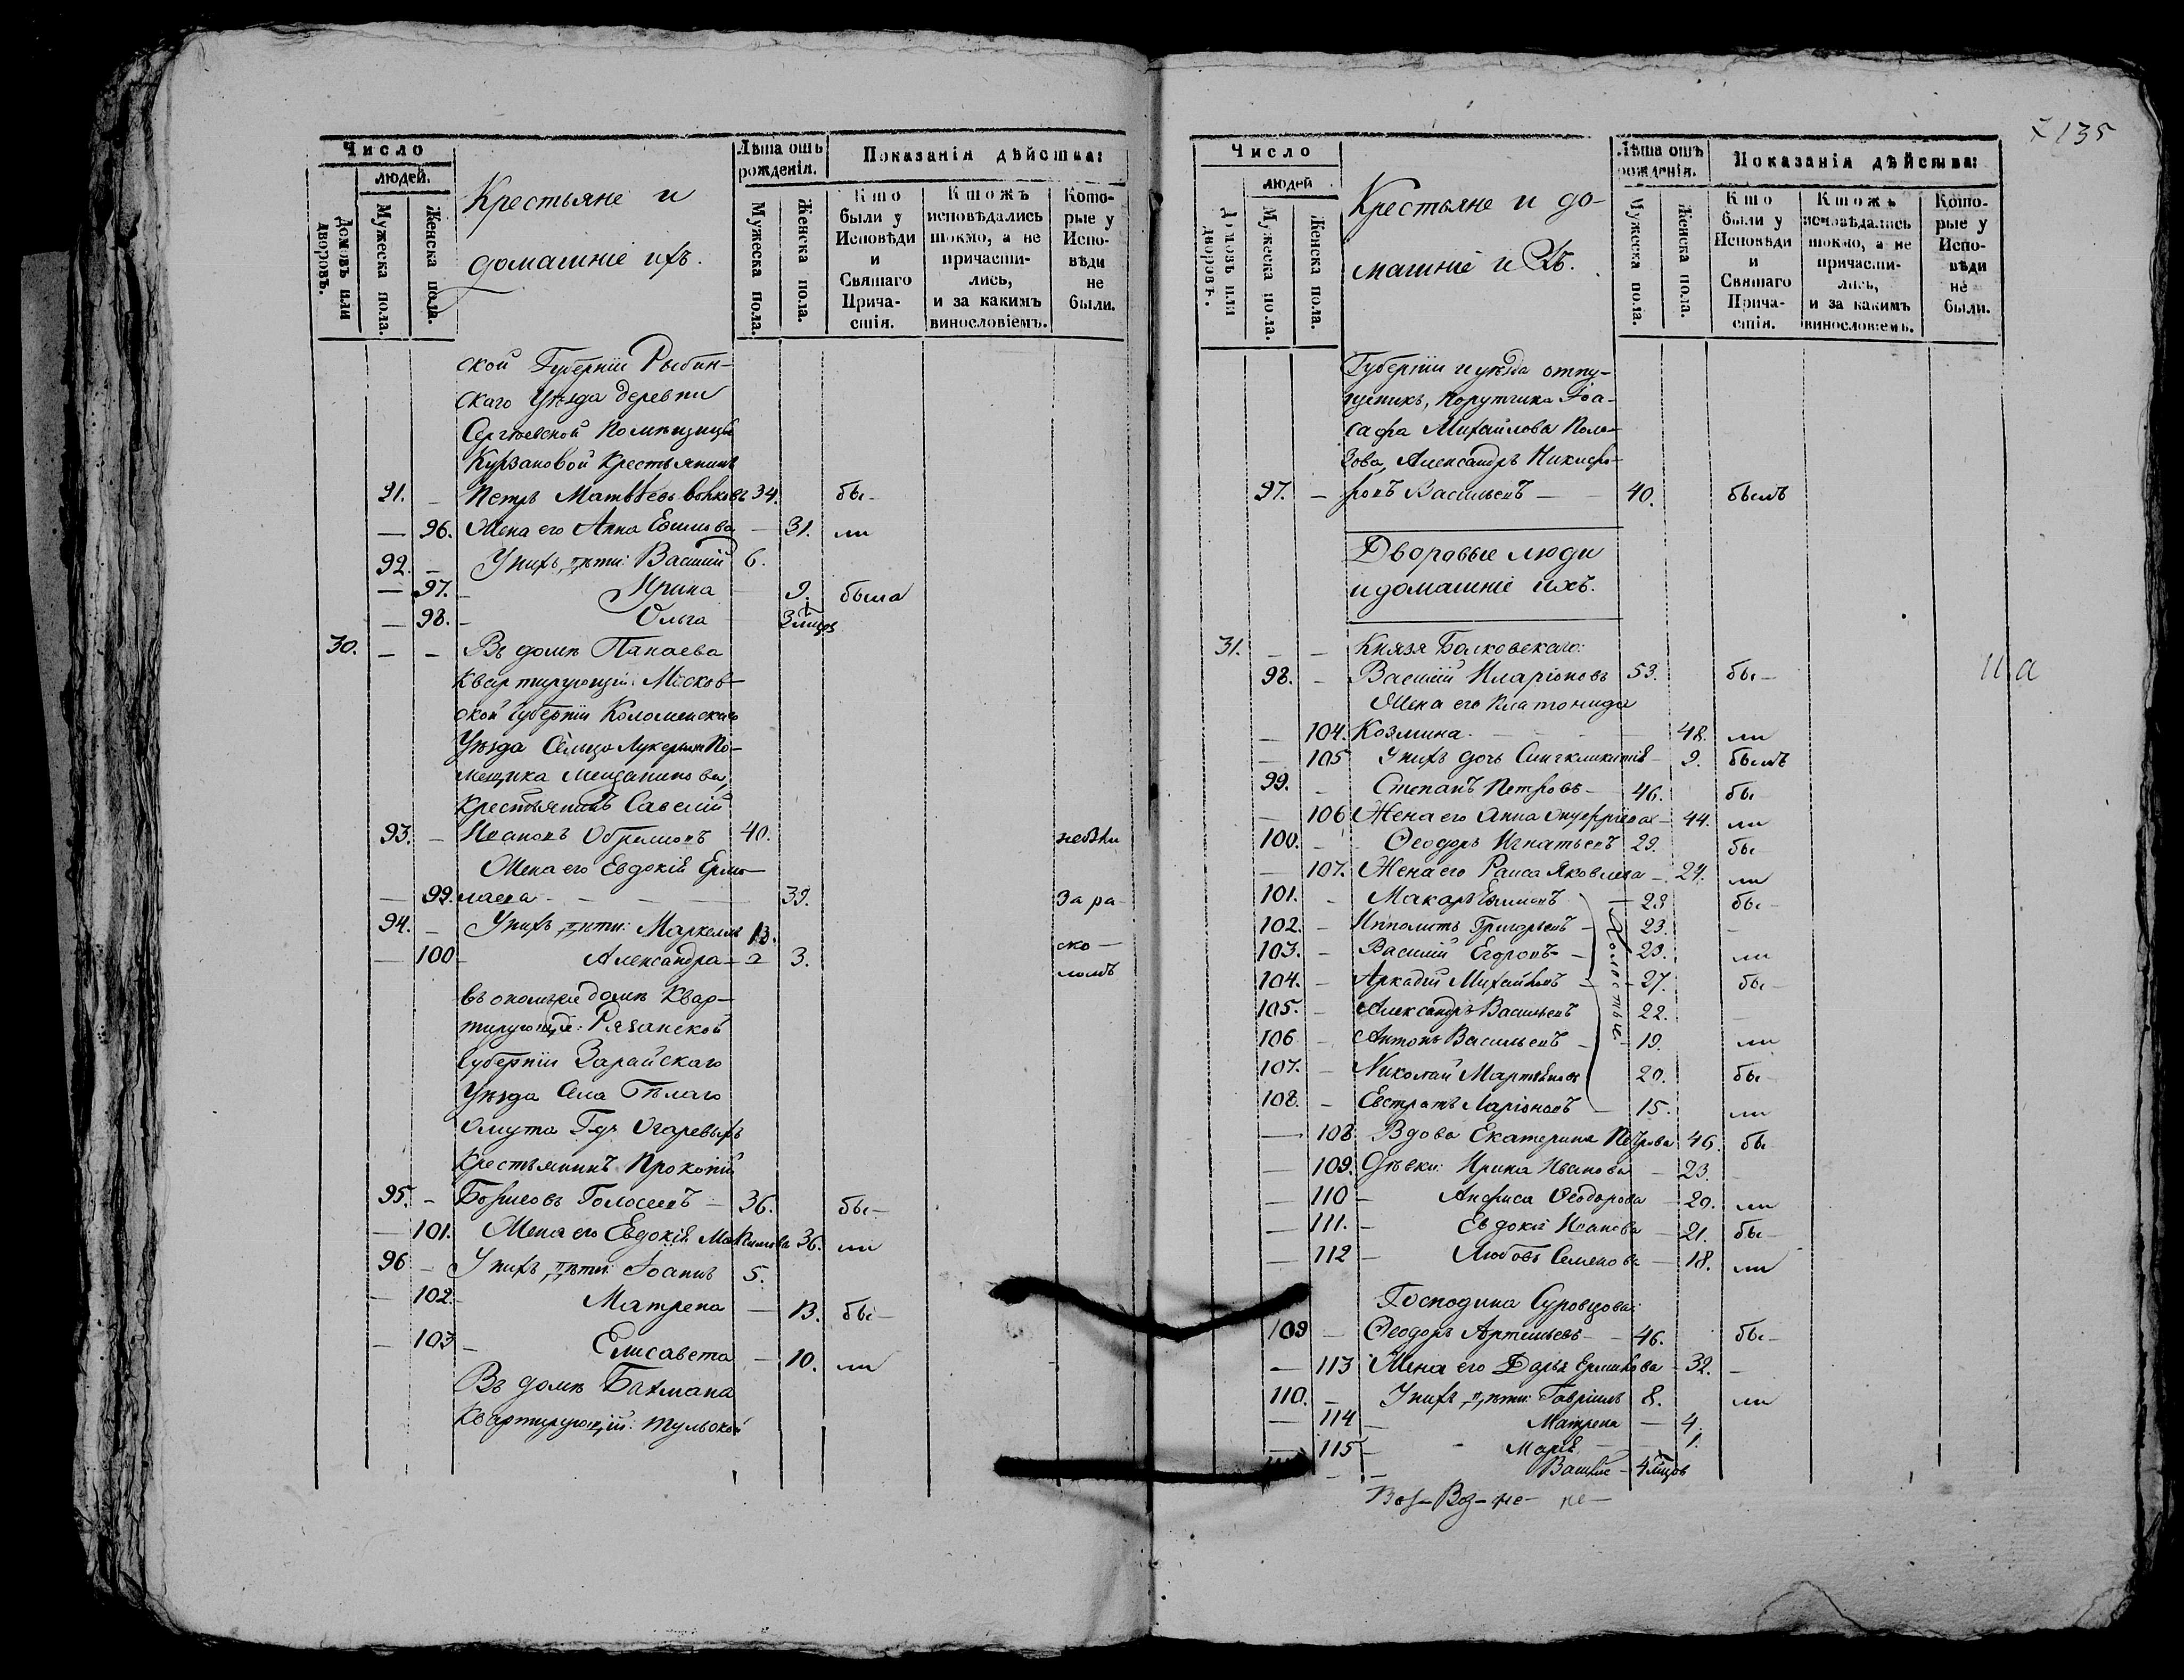 Число
людей.
Домовъ или дворовъ.
Мужеска пола.
Женска пола.
Крестьяне и
домашніе ихъ.
Лѣта отъ рожденія.
Мужеска пола.
Женска пола.
Показанія дѣйства:
Кто были у Исповѣди и Святаго Прича- стія.
Ктожъ исповѣдались токмо, а не причасти- лись, и за какимъ винословіемъ.
Кото- рые у Испо- вѣди не были.
ской Губерніи Рыбин-
скаго Уѣзда деревни
Сергѣевской помѣщицы
Курзановой Крестьянинъ
91. — Петръ Матвѣевъ 34. бы-
— 96. Жена его Анна — 31. ли
92. — У нихъ дѣти: Василій 6.
— 97. — Ирина — 9. была
— 98. — Ольга — 3 мцъ
30. — — Въ домѣ Панаева
квартирующіи: Москов-
ской Губерніи Коломенскаго
Уѣзда Сельца По-
мещика Мещанинова
крестьянинъ Савелій
93. — Ивановъ 40. небыли
Жена его Евдокія Ермо-
— 99. лаева — 39. За ра-
94. — У нихъ дѣти: Маркеллъ 13. ско —
— 100 — Александра — 3. ломъ
въ ономже домѣ Квар-
тирующіе: Рязанской
Губерніи Зарайскаго
Уѣзда Села Бѣлаго
Омута Гдъ Огаревыхъ
Крестьянинъ Прокопій
95. — Борисовъ Голосеевъ — 36. бы-
— 101. Жена его Евдокія Максимова 36. ли
96 — У нихъ дѣти: Іоаннъ 5.
— 102. — Матрена — 13. бы-
— 103 — Елисавета — 10. ли
Въ домѣ Бахмана
квартирующіи: Тульской
7 135
Число
людей
Домовъ или дворовъ.
Мужеска пола.
Женска пола.
Крестьяне и до-
машніе ихъ.
Лѣта отъ рожденія.
Мужеска пола.
Женска пола.
Показанія дѣйства:
Кто были у Исповѣди и Святаго Прича- стія.
Ктожъ исповѣдались токмо, а не причасти- лись, и за какимъ винословіемъ.
Кото- рые у Испо- вѣди не были.
Губерніи и уѣзда отпу-
щеникъ, Порутчика Іоа-
сафа Михайлова Поло-
зова, Александръ Никифо-
97. — ровъ Васильевъ — 40. былъ
Дворовые люди
и домашніе ихъ.
31. — — Князя Болковскаго:
98. — Василій Иларіоновъ 53. бы —
Жена его Платонида
— 104. Козмина. — 48. ли
— 105 У нихъ дочь — 9. былъ
99. — Степанъ Петровъ — 46. бы
— 106 Жена его Анна — 44. ли
100. — Ѳеодоръ Игнатьевъ 29. бы
— 107. Жена его Раиса Яковлева — 24. ли
101. — Макаръ — 23 бы —
102. — Ипполитъ Григорьевъ — 23. —
103. — Василій Егоровъ — 23. ли
104. — Аркадій Михайловъ — 27. бы —
105. — Александръ Васильевъ 22.
106 — Антонъ Васильевъ — 19. ли
107. — Николай Мартыновъ 20. бы
108. — Евстратъ Ларіоновъ — 15. ли
Холостые
— 108 Вдова Екатерина Петрова 46. бы
— 109. Дѣвки: Ирина Иванова — 23. —
— 110 — Анфиса Ѳеодорова — 20. ли
— 111. — Евдокія Иванова — 21. бы —
— 112 — Любовь Семенова — 18. ли
Господина Суровцова:
109 — Ѳеодоръ Артемьевъ — 46. бы —
— 113 Жена его Дарья — 32. —
110. — У нихъ дѣти: Гавріилъ 8. ли
— 114 — Матрена — 4.
— 115 — Марія — 1.
— — — 4 мцовъ